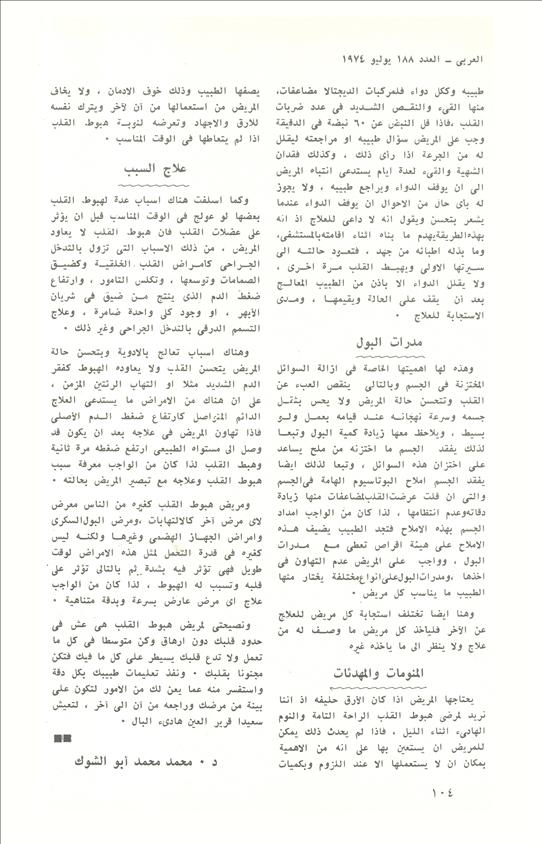 العربى – العدد ١٨٨ يوليو ١٩٧٤
طبيبه وككل دواء فلمركبات الديجتالا مضاعفات،
منها القىء والنقـص الشـديد فى عدد ضربات
القلب ،فاذا قل النبض عن ٦٠ نبضة فى الدقيقة
وجب على المريض سؤال طبيبه او مراجعته ليقلل
له من الجرعة اذا رأى ذلك ، وكذلك فقدان
الشهية والقىء لعدة ايام يستدعى انتباه المريض
الى ان يوقف الدواء ويراجع طبيبه ، ولا يجوز
له باى حال من الاحوال ان يوقف الدواء عندما
يشعر بتحسن ويقول انه لا داعى للعلاج اذ انه
بهذه الطريقة يهدم ما بناه اثناء اقامته بالمستشفى،
وما بذله اطبائه من جهد ، فتعـود حالتـه الى
سـيرتها الاولى ويهبـط القلب مـرة اخـرى ،
ولا يقلل الدواء الا باذن من الطبيب المعالـج
بعد أن يقف على الحالة ويقيمهـا ، ومـدى
الاستجابة للعلاج ٠
مدرات البول
وهذه لها اهميتها الخاصة فى ازالة السوائل
المختزنة فى الجسم وبالتالى ينقص العبء عن
القلب وتتحسن حالة المريض ولا يحس بثقـل
جسمه وسرعة نهجانـه عنـد قيامه بعمـل ولـو
بسيط ، ويلاحظ معها زيادة كمية البول وتبعـا
لذلك يفقد الجسم ما اختزنه من ملح يساعد
على اختزان هذه السوائل ، وتبعا لذلك ايضا
يفقد الجسم املاح البوتاسيوم الهامة فى الجسم
والتى ان قلت عرضت القلب لمضاعفات منها زيادة
دقاته وعدم انتظامها ، لذا كان من الواجب امداد
الجسم بهذه الاملاح فتجد الطبيب يضيف هـذه
الاملاح على هيئة اقراص تعطى مـع مـدرات
البول ، وواجب على المريض عدم التهاون فى
اخذها ،ومدرات البول على انواع مختلفة يختار منها
الطبيب ما يناسب كل مريض ٠
وهنا ايضا تختلف استجابة كل مريض للعلاج
عن الآخر فلياخذ كل مريض ما وصـف له من
علاج ولا ينظر الى ما ياخذه غيره
المنومات والمهدئات
يحتاجها المريض اذا كان الأرق حليفه اذ اننا
نريد لمرضى هبوط القلب الراحة التامة والنوم
الهادىء اثناء الليل ، فاذا لم يحدث ذلك يمكن
للمريض ان يستعين بها على انه من الاهمية
بمكان ان لا يستعملها الا عند اللزوم وبكميات
يصفها الطبيب وذلك خوف الادمان ، ولا يخاف
المريض من استعمالها من آن لآخر ويترك نفسه
للارق والاجهاد وتعرضه لنوبـة هبوط القلب
اذا لم يتعاطها فى الوقت المناسب ٠
علاج السبب
وكما اسلفت هناك اسباب عدة لهبوط القلب
بعضها لو عولج فى الوقت المناسب قبل ان يؤثر
على عضلات القلب فان هبوط القلب لا يعاود
المريض ، من ذلك الاسباب التى تزول بالتدخل
الجراحى كامـراض القلب الخلقيـة وكضيـق
الصمامات وتوسعها ، وتكلس التامور ، وارتفاع
ضغط الدم الذى ينتج مـن ضيق فى شريان
الأبهر ، او وجود كلى واحدة ضامرة ، وعلاج
التسمم الدرقى بالتدخل الجراحى وغير ذلك ٠
وهناك اسباب تعالج بالادوية ويتحسن حالة
المريض يتحسن القلب ولا يعاوده الهبوط كفقر
الدم الشديد مثلا او التهاب الرئتين المزمن ،
على ان هناك من الامراض ما يستدعى العلاج
الدائم المتواصل كارتفاع ضغط الـدم الأصلى
فاذا تهاون المريض فى علاجه بعد ان يكون قد
وصل الى مستواه الطبيعى ارتفع ضغطه مرة ثانية
وهبط القلب لذا كان من الواجب معرفة سبب
هبوط القلب وعلاجه مع تبصير المريض بحالته ٠
ومريض هبوط القلب كغيره من الناس معرض
لاى مرض آخر كالالتهابات ،ومرض البول السكرى
وامراض الجهـاز الهضمى وغيرهـا ولكنـه ليس
كغيره فى قدرة التحمل لمثل هذه الامراض لوقت
طويل فهى تؤثر فيه بشدة ثم بالتالى تؤثر على
قلبه وتسبب له الهبوط ، لذا كان من الواجب
علاج اى مرض عارض بسرعة وبدقة متناهية ٠
ونصيحتى لمريض هبوط القلب هى عش فى
حدود قلبك دون ارهاق وكن متوسطا فى كل ما
تعمل ولا تدع قلبك يسيطر على كل ما فيك فتكن
مجنونا بقلبك ٠ ونفذ تعليمات طبيبك بكل دقة
واستفسر منه عما يعن لك من الامور لتكون على
بينة من مرضك وراجعه من آن الى آخر ، لتعيش
سعيدا قرير العين هادىء البال ٠
د ٠ محمد محمد أبو الشوك
١٠٤